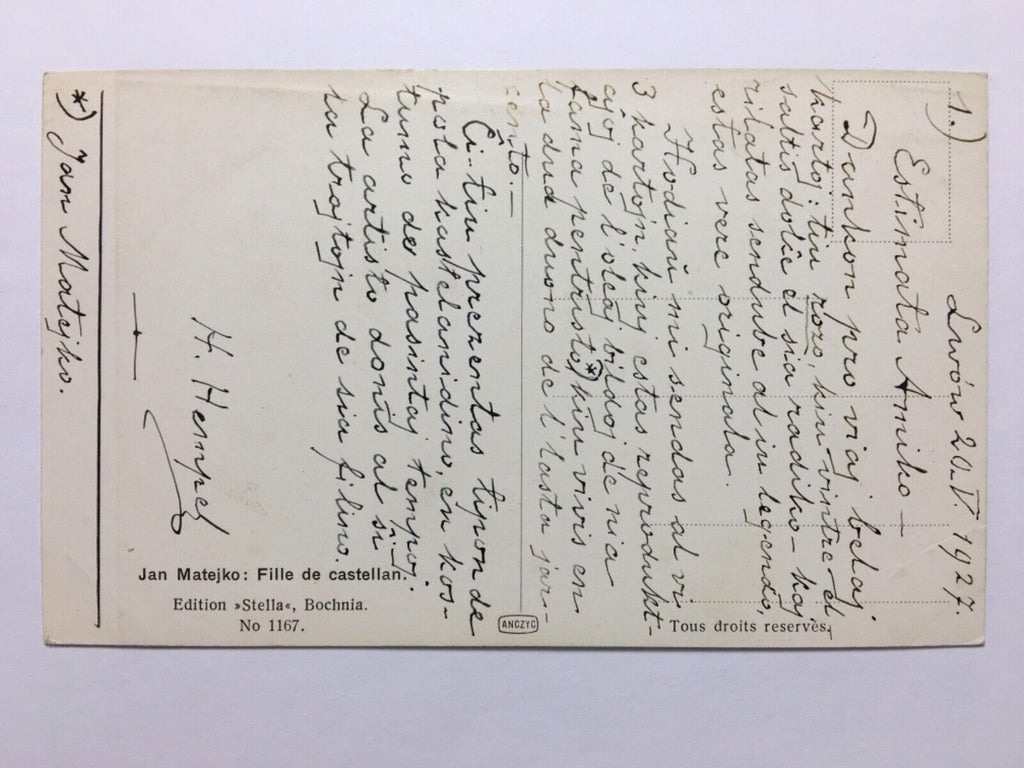 1.) Lwów 20.V.1927.
Estimata Amiko –
Dankon pro viaj belaj
kartoj: tiu rozo, kiu vintre el-
saltis dolĉe el sia radiko – kaj
rilatas sendube al iu legendo,
estas vere originala.
Hodiaŭ mi sendas al vi
3 kartojn kiuj estas reprodukt-
ajoj de l'oleaj bildoj de nia
fama pentristo*) kiu vivis en
la dua duono de l'lasta jar-
cento. –
Ĉi-tiu prezentas tipon de
pola kastelanidino, en kos-
tumo de pasintaj tempoj.
La artisto donis al ŝi
la trajtojn de sia filino.
H. Hempel
*) Jan Matejko.
Jan Matejko: Fille de castellan.
Edition »Stella«, Bochnia.
No 1167.
ANCZYC
Tous droits reservés.